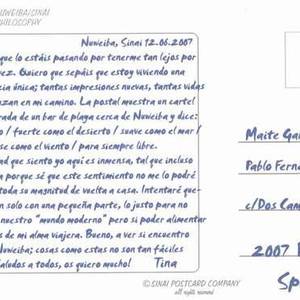 NUWEIBA/SINAI
PHILOSOPHY
Nuweiba, Sinai 12.06.2007
que lo estáis pasando por tenerme tan lejos por
vez. Quiero que sepáis que estoy viviendo una
cia única; tantas impresiones nuevas, tantas vidas
zan en mi camino. La postal muestra un cartel
rada de un bar de playa cerca de Nuweiba y dice:
o / fuerte como el desierto / suave como el mar /
se como el viento / para siempre libre.
ad que siento yo aquí es inmensa, tal que incluso
a porque sé que este sentimiento no me lo podré
toda su magnitud de vuelta a casa. Intentaré que-
on solo con una pequeña parte, lo justo para no
nuestro "mundo moderno" pero sí poder alimentar
s de mi alma viajera. Bueno, a ver si encuentro
Nuweiba; cosas como estas no son tan fáciles
Saludos a todos, os quiero mucho! Tina
©SINAI POSTCARD COMPANY
all rights reserved
Maite Gar
Pablo Ferna
c/Dos Cam
2007
Sp